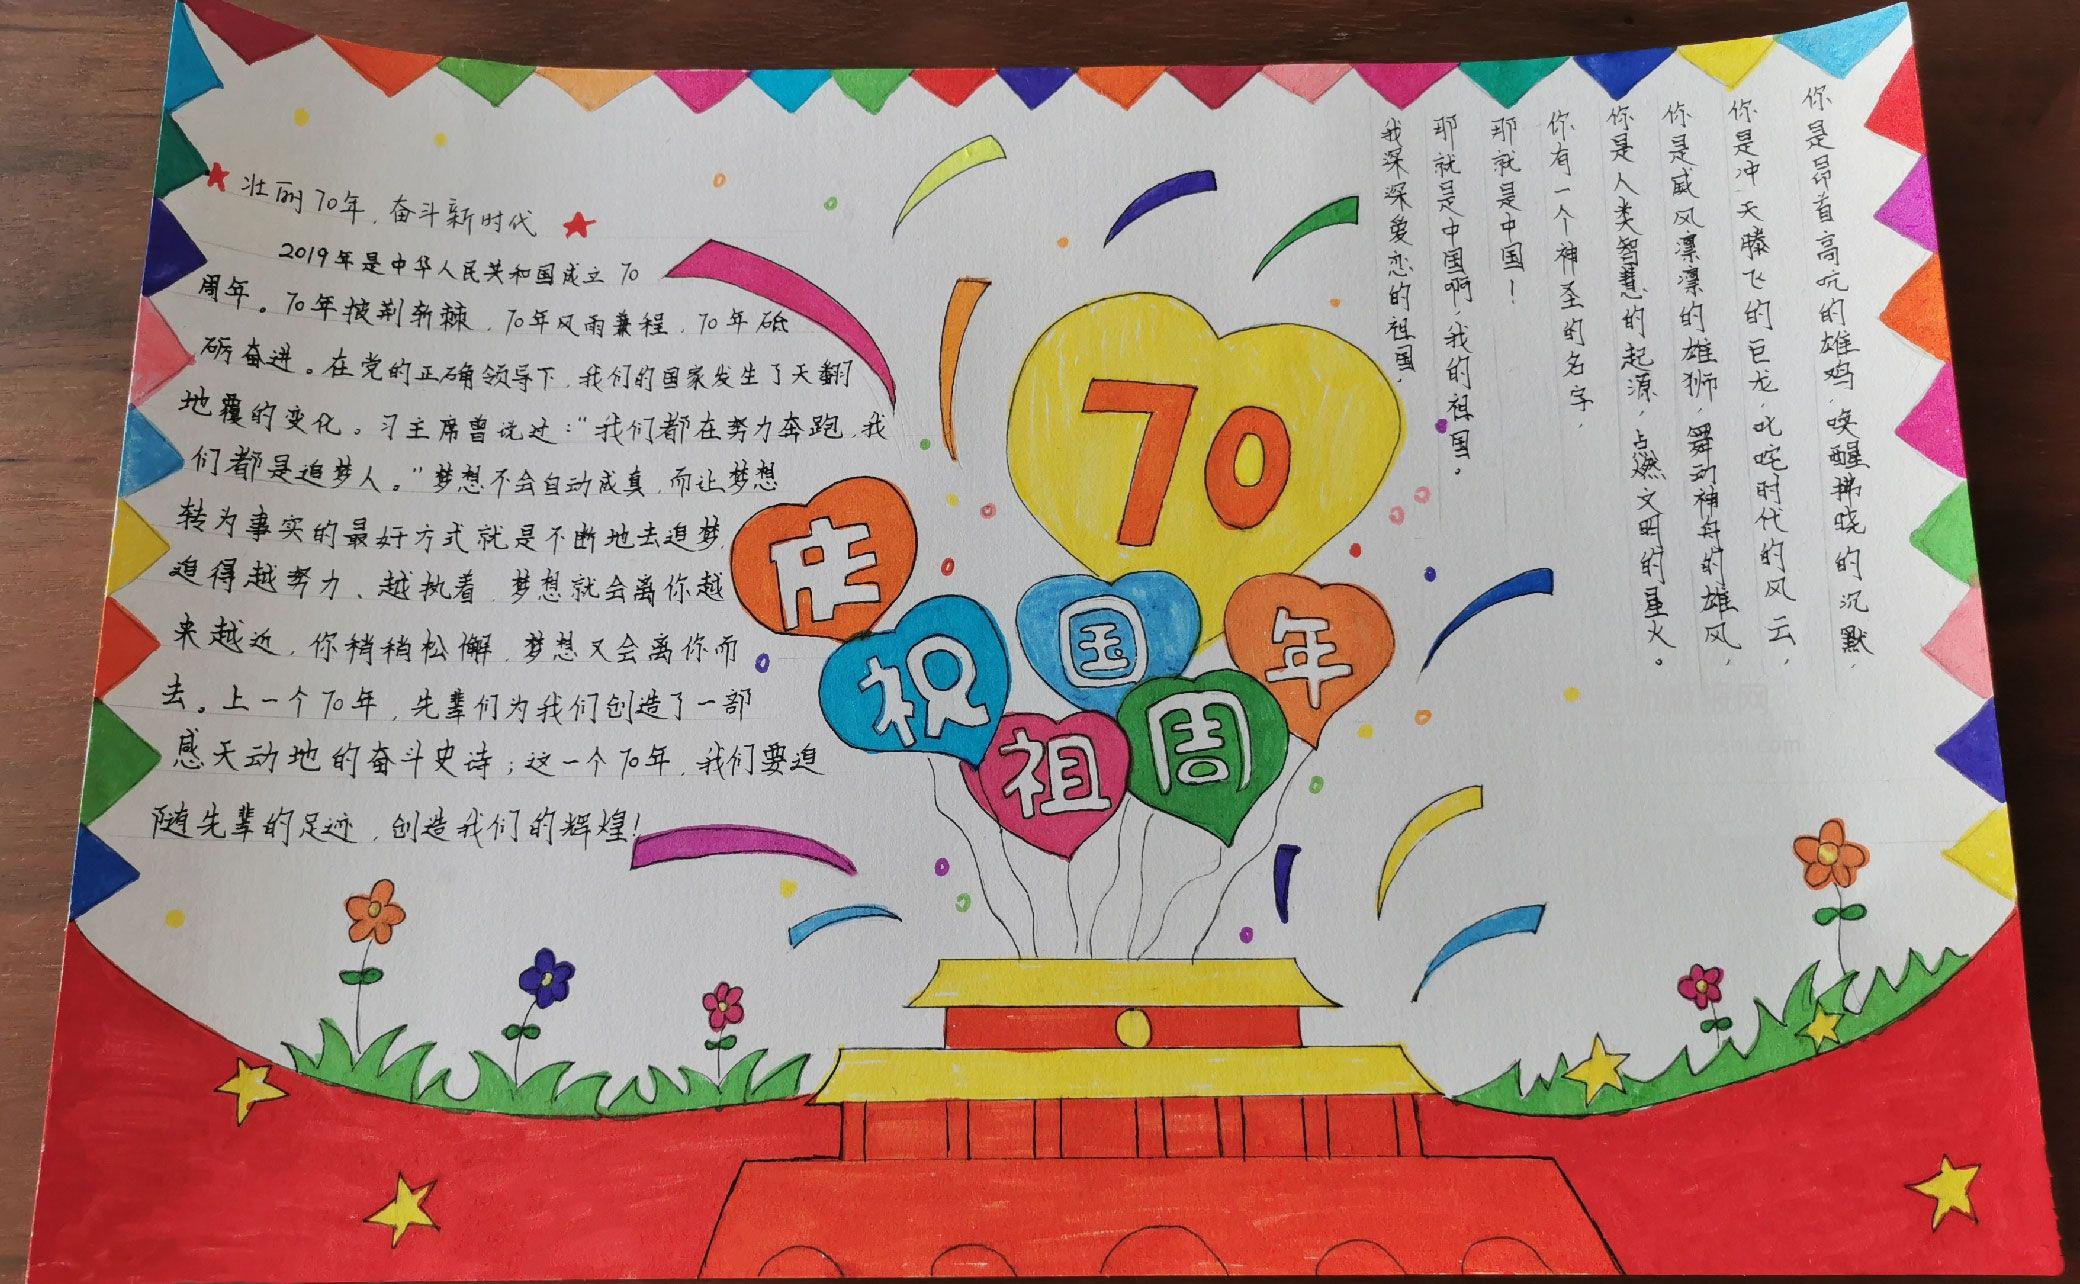 壮丽70年，奋斗新时代
2019年是中华人民共和国成立70
周年。70年披荆斩棘，70年风雨兼程，70年砥
砺奋进。在党的正确领导下，我们的国家发生了天翻
地覆的变化。习主席曾说过："我们都在努力奔跑，我
们都是追梦人。"梦想不会自动成真，而让梦想
转为事实的最好方式就是不断地去追梦，
追得越努力、越执着，梦想就会离你越
来越近，你稍稍松懈，梦想又会离你而
去。上一个70年，先辈们为我们创造了一部
感天动地的奋斗史诗；这一个70年，我们要追
随先辈的足迹，创造我们的辉煌！
70
庆祝祖国周年
你是昂首高吭的雄鸡，唤醒拂晓的沉默，
你是冲天腾飞的巨龙，叱咤时代的风云，
你是威风凛凛的雄狮，舞动神舟的雄风，
你是人类智慧的起源，点燃文明的星火。
你有一个神圣的名字，
那就是中国！
那就是中国啊，我的祖国。
我深深爱恋的祖国，